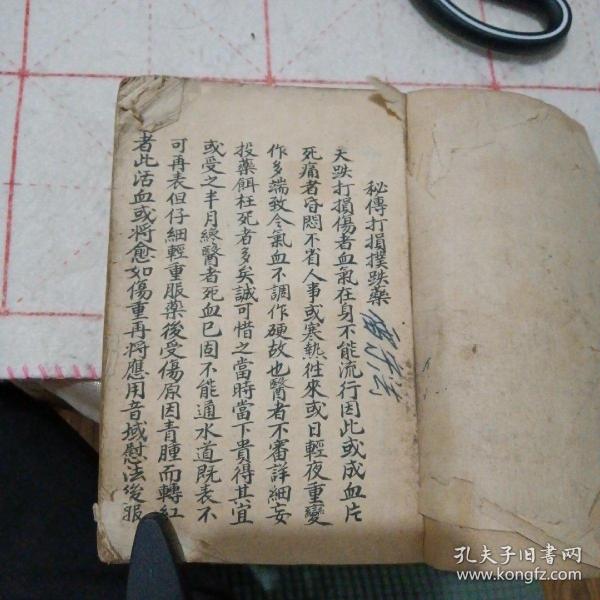 秘傳打損撲跌藥
夫跌打損傷者血氣在身不能流行因此或成血片
死痛者昏悶不省人事或寒熱往來或日輕夜重變
作多端致令氣血不調作硬故也醫者不審詳細妄
投藥餌枉死者多矣誠可惜之當時當下貴得其宜
或受之半月終醫者死血已固不能通水道既表不
可再表但仔細輕重服藥後受傷原因青腫而轉紅
者此活血或將愈如傷重再將應用音域慰法後服
孔夫子旧书网
www.kongfz.com